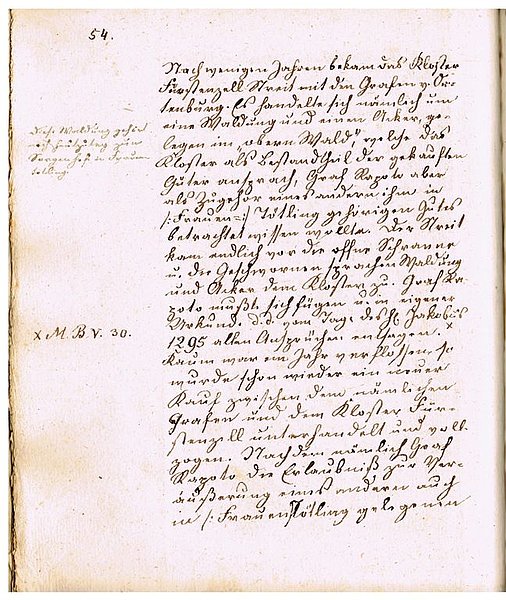 54.
Nach wenigen Jahren bekam das Kloster
Fürstenzell Streit mit den Grafen v. Or-
tenburg. Es handelte sich nämlich um
eine Waldung und einen Acker, ge-
legen im „obern Wald", welche das
Kloster als Bestandtheil der gekauften
Güter ansprach, Graf Rapoto aber
als Zugehör eines andern ihm in
/:Frauen=:/ Tötling gehörigen Gutes
betrachtet wissen wollte. Der Streit
kam endlich vor die offne Schranne
u. die Geschwornen sprachen Waldung
und Acker dem Kloster zu. Graf Ra-
poto mußte sich fügen u. in eigener
Urkunde d.d. vom Tag des hl. Jakobus
1295 allen Ansprüchen entsagen. x
Kaum war ein Jahr verflossen, so
wurde schon wieder ein neuer
Kauf zwischen dem nämlichen
Grafen und dem Kloster Für-
stenzell unterhandelt und voll-
zogen. Nachdem nämlich Graf
Rapoto die Erlaubniß zur Ver-
äußerung eines anderen auch
in /:Frauen/tötling gelegenen
Diese Waldung gehört
zum
in Frauen-
tötling.
x M. B. V. 30.